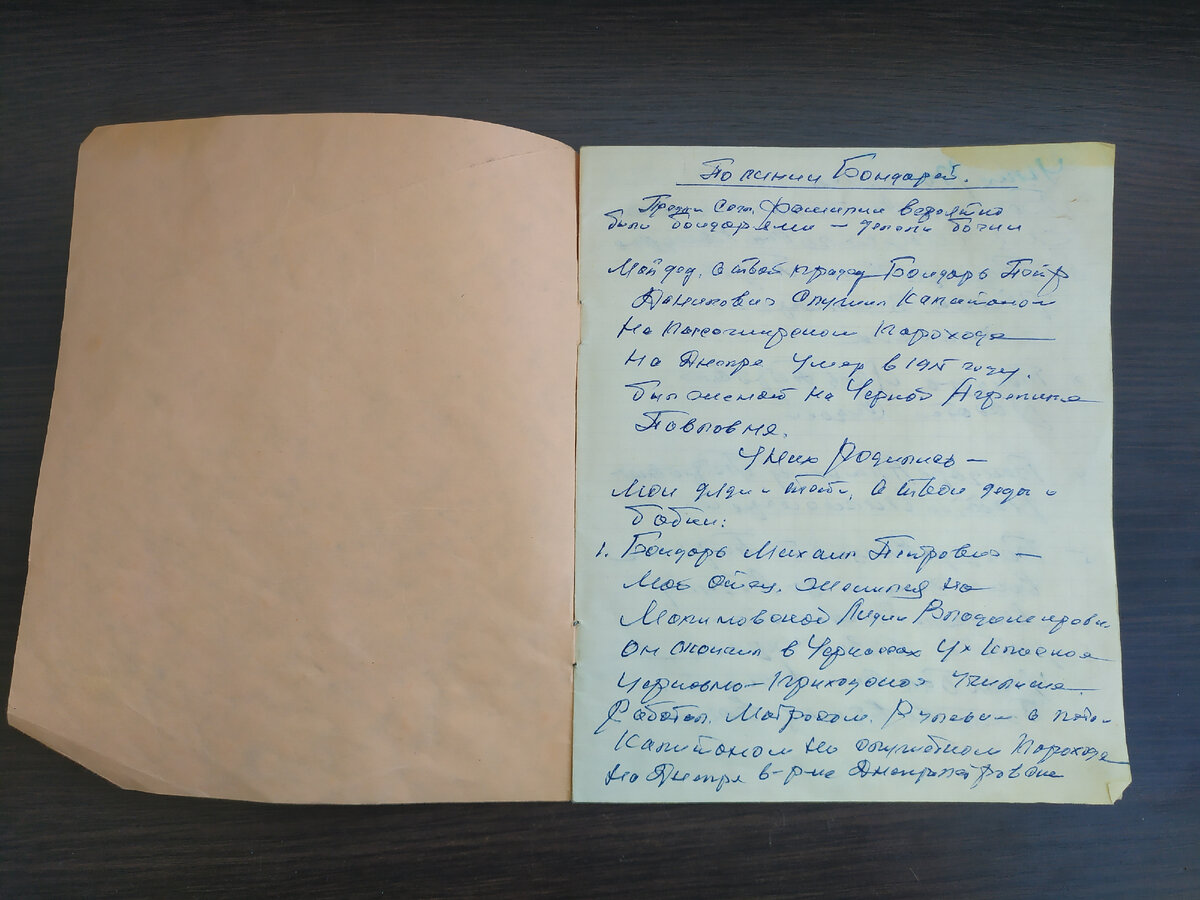 По линии Бондарей.
Предки Фамилии вероятно
были бондарями – делали бочки
Мой дед, а твой прадед Бондарь Пётр
служил Капитаном
на Пассажирском Пароходе
на Днепре умер в году.
был женат на Черной Агрепине
Павловне.
У них Родились –
Мои дяди и тёти, а твои деды и
бабки:
1. Бондарь Михаил Петрович –
Мой отец, женился на
Максимовской Лидии
он окончил в Черкассах 4х Классное
Церковно-Приходское Училище.
Работал Матросом, Рулевым а
Капитаном на Пароходе
на Днепре в-р-не Днепропетровска